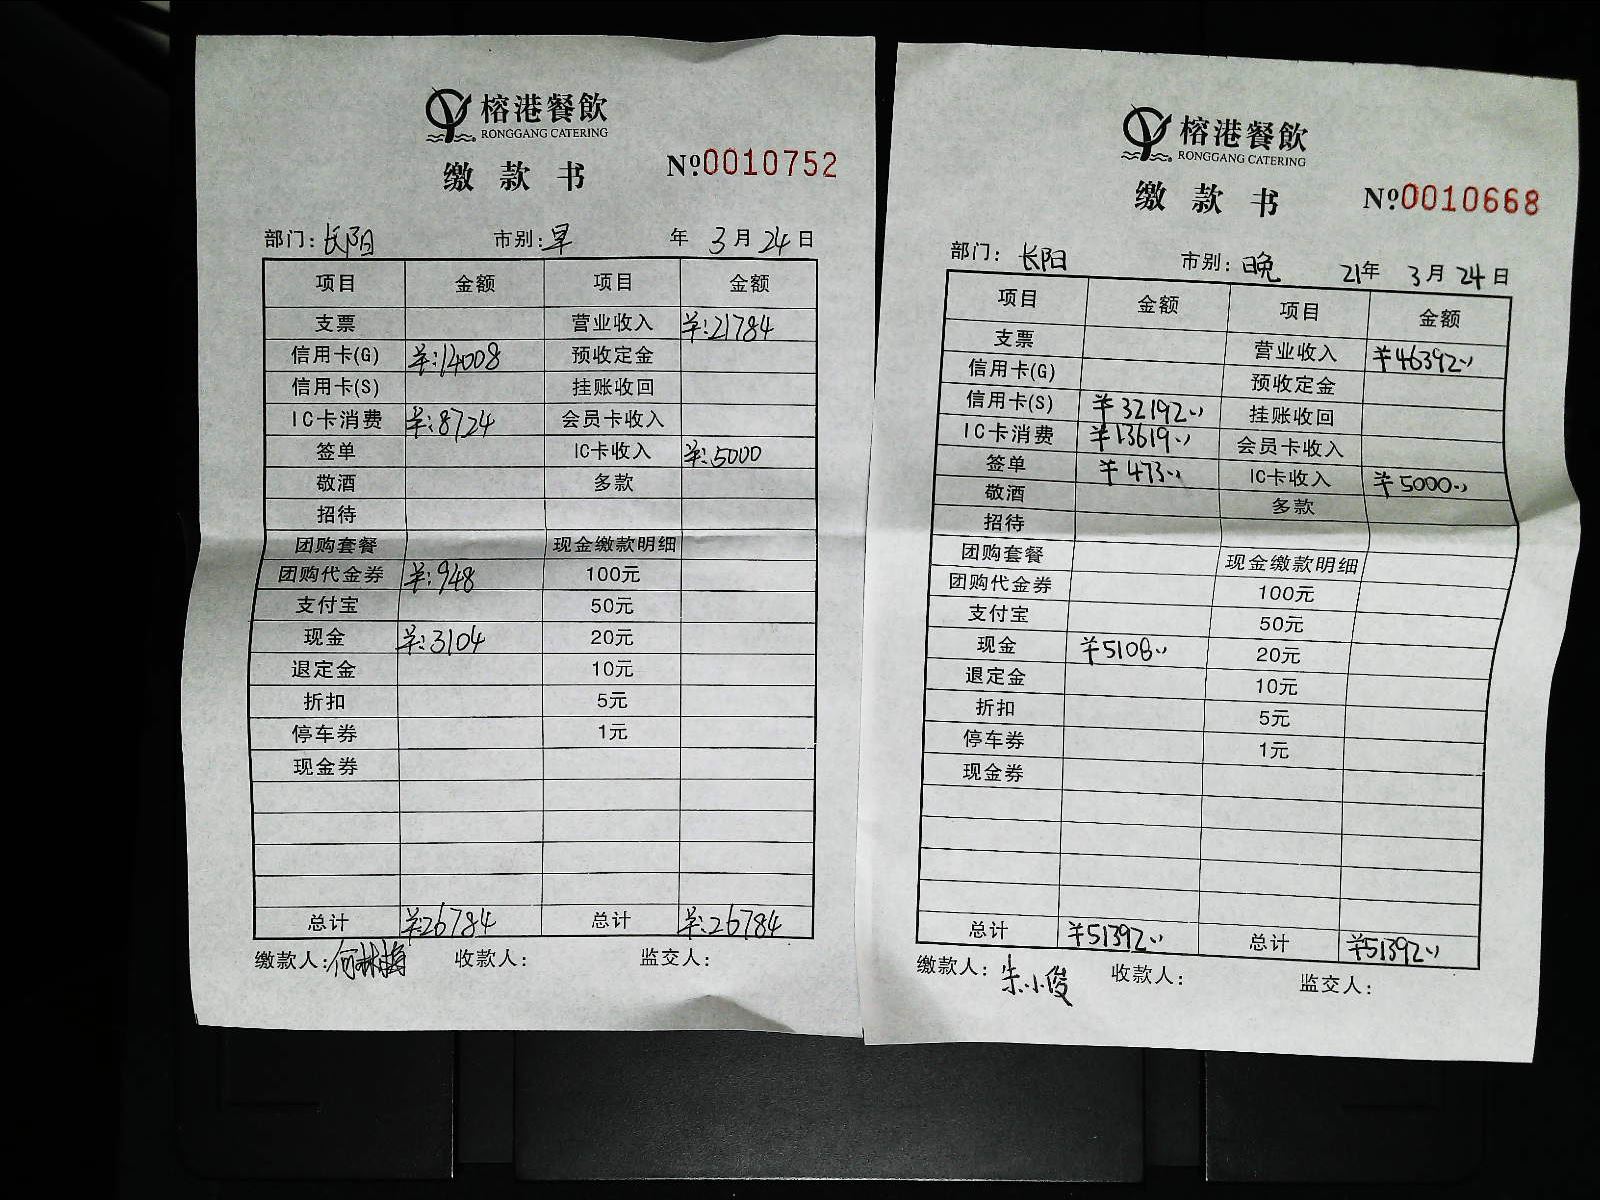 榕港餐飲
RONGGANG CATERING
缴款书 №0010752
部门：长阳 市别：早 年 3月24日
项目 金额 项目 金额
支票 营业收入 ¥:21784
信用卡(G) ¥:14008 预收定金
信用卡(S) 挂账收回
IC卡消费 ¥:8724 会员卡收入
签单 IC卡收入 ¥:5000
敬酒 多款
招待
团购套餐 现金缴款明细
团购代金券 ¥:948 100元
支付宝 50元
现金 ¥:3104 20元
退定金 10元
折扣 5元
停车券 1元
现金券
总计 ¥:26784 总计 ¥:26784
缴款人：何林梅 收款人： 监交人：
榕港餐飲
RONGGANG CATERING
缴款书 №0010668
部门：长阳 市别：晚 21年 3月24日
项目 金额 项目 金额
支票 营业收入 ¥46392
信用卡(G) 预收定金
信用卡(S) ¥32192 挂账收回
IC卡消费 ¥13619 会员卡收入
签单 ¥473 IC卡收入 ¥5000
敬酒 多款
招待
团购套餐 现金缴款明细
团购代金券 100元
支付宝 50元
现金 ¥5108 20元
退定金 10元
折扣 5元
停车券 1元
现金券
总计 ¥51392 总计 ¥51392
缴款人：朱小俊 收款人： 监交人：